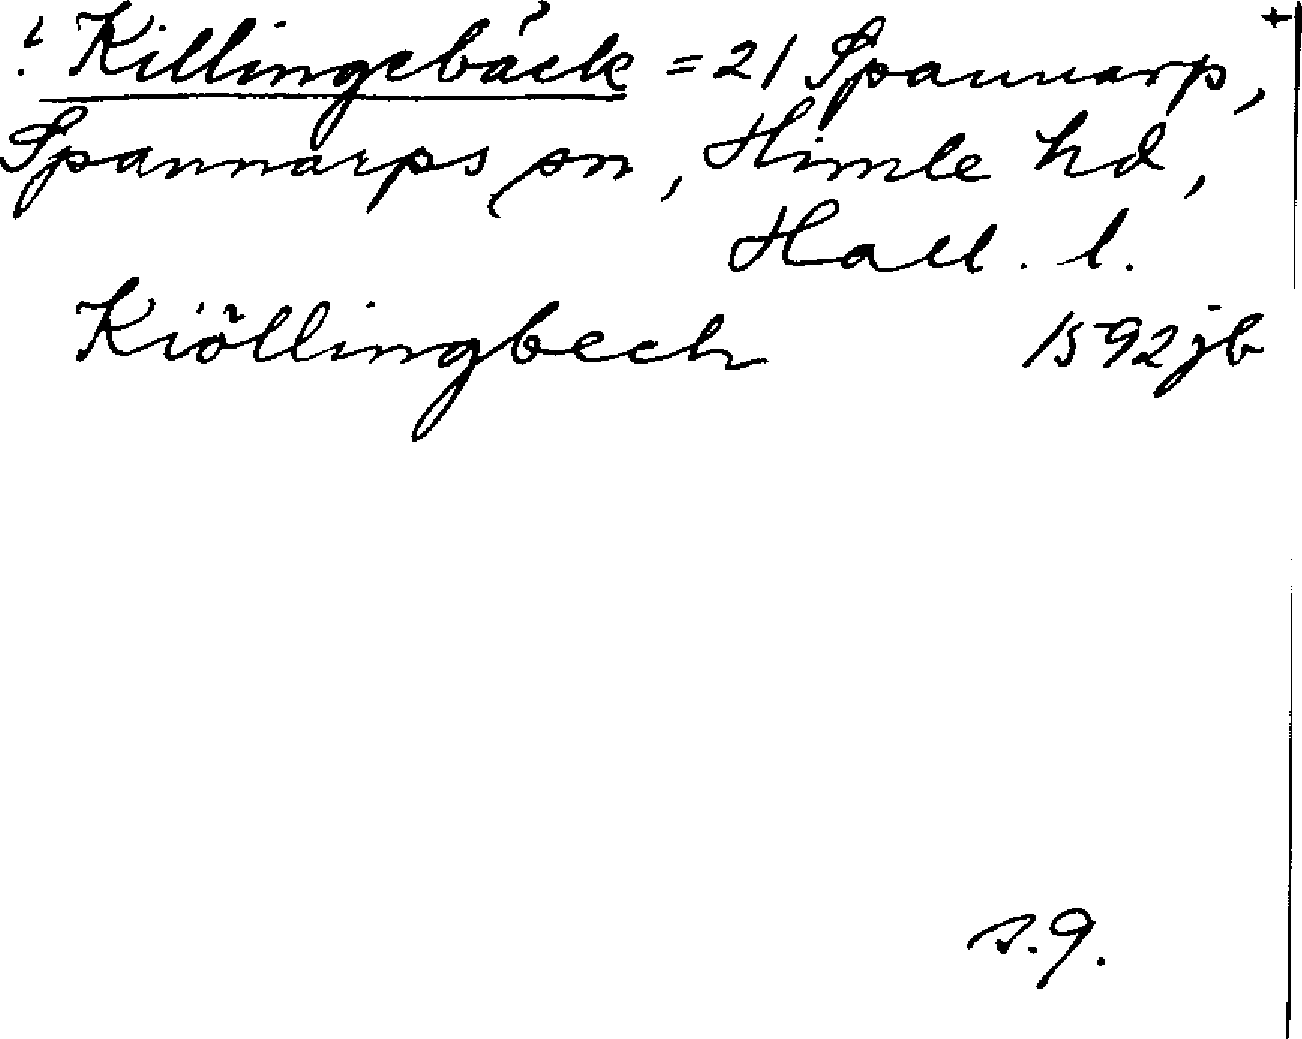 : Killingebäck = 21 Spannarp, +
Spannarps sn, Himle hd,
Hall. l.
Kiöllingbech 1592 jb
s. 9.